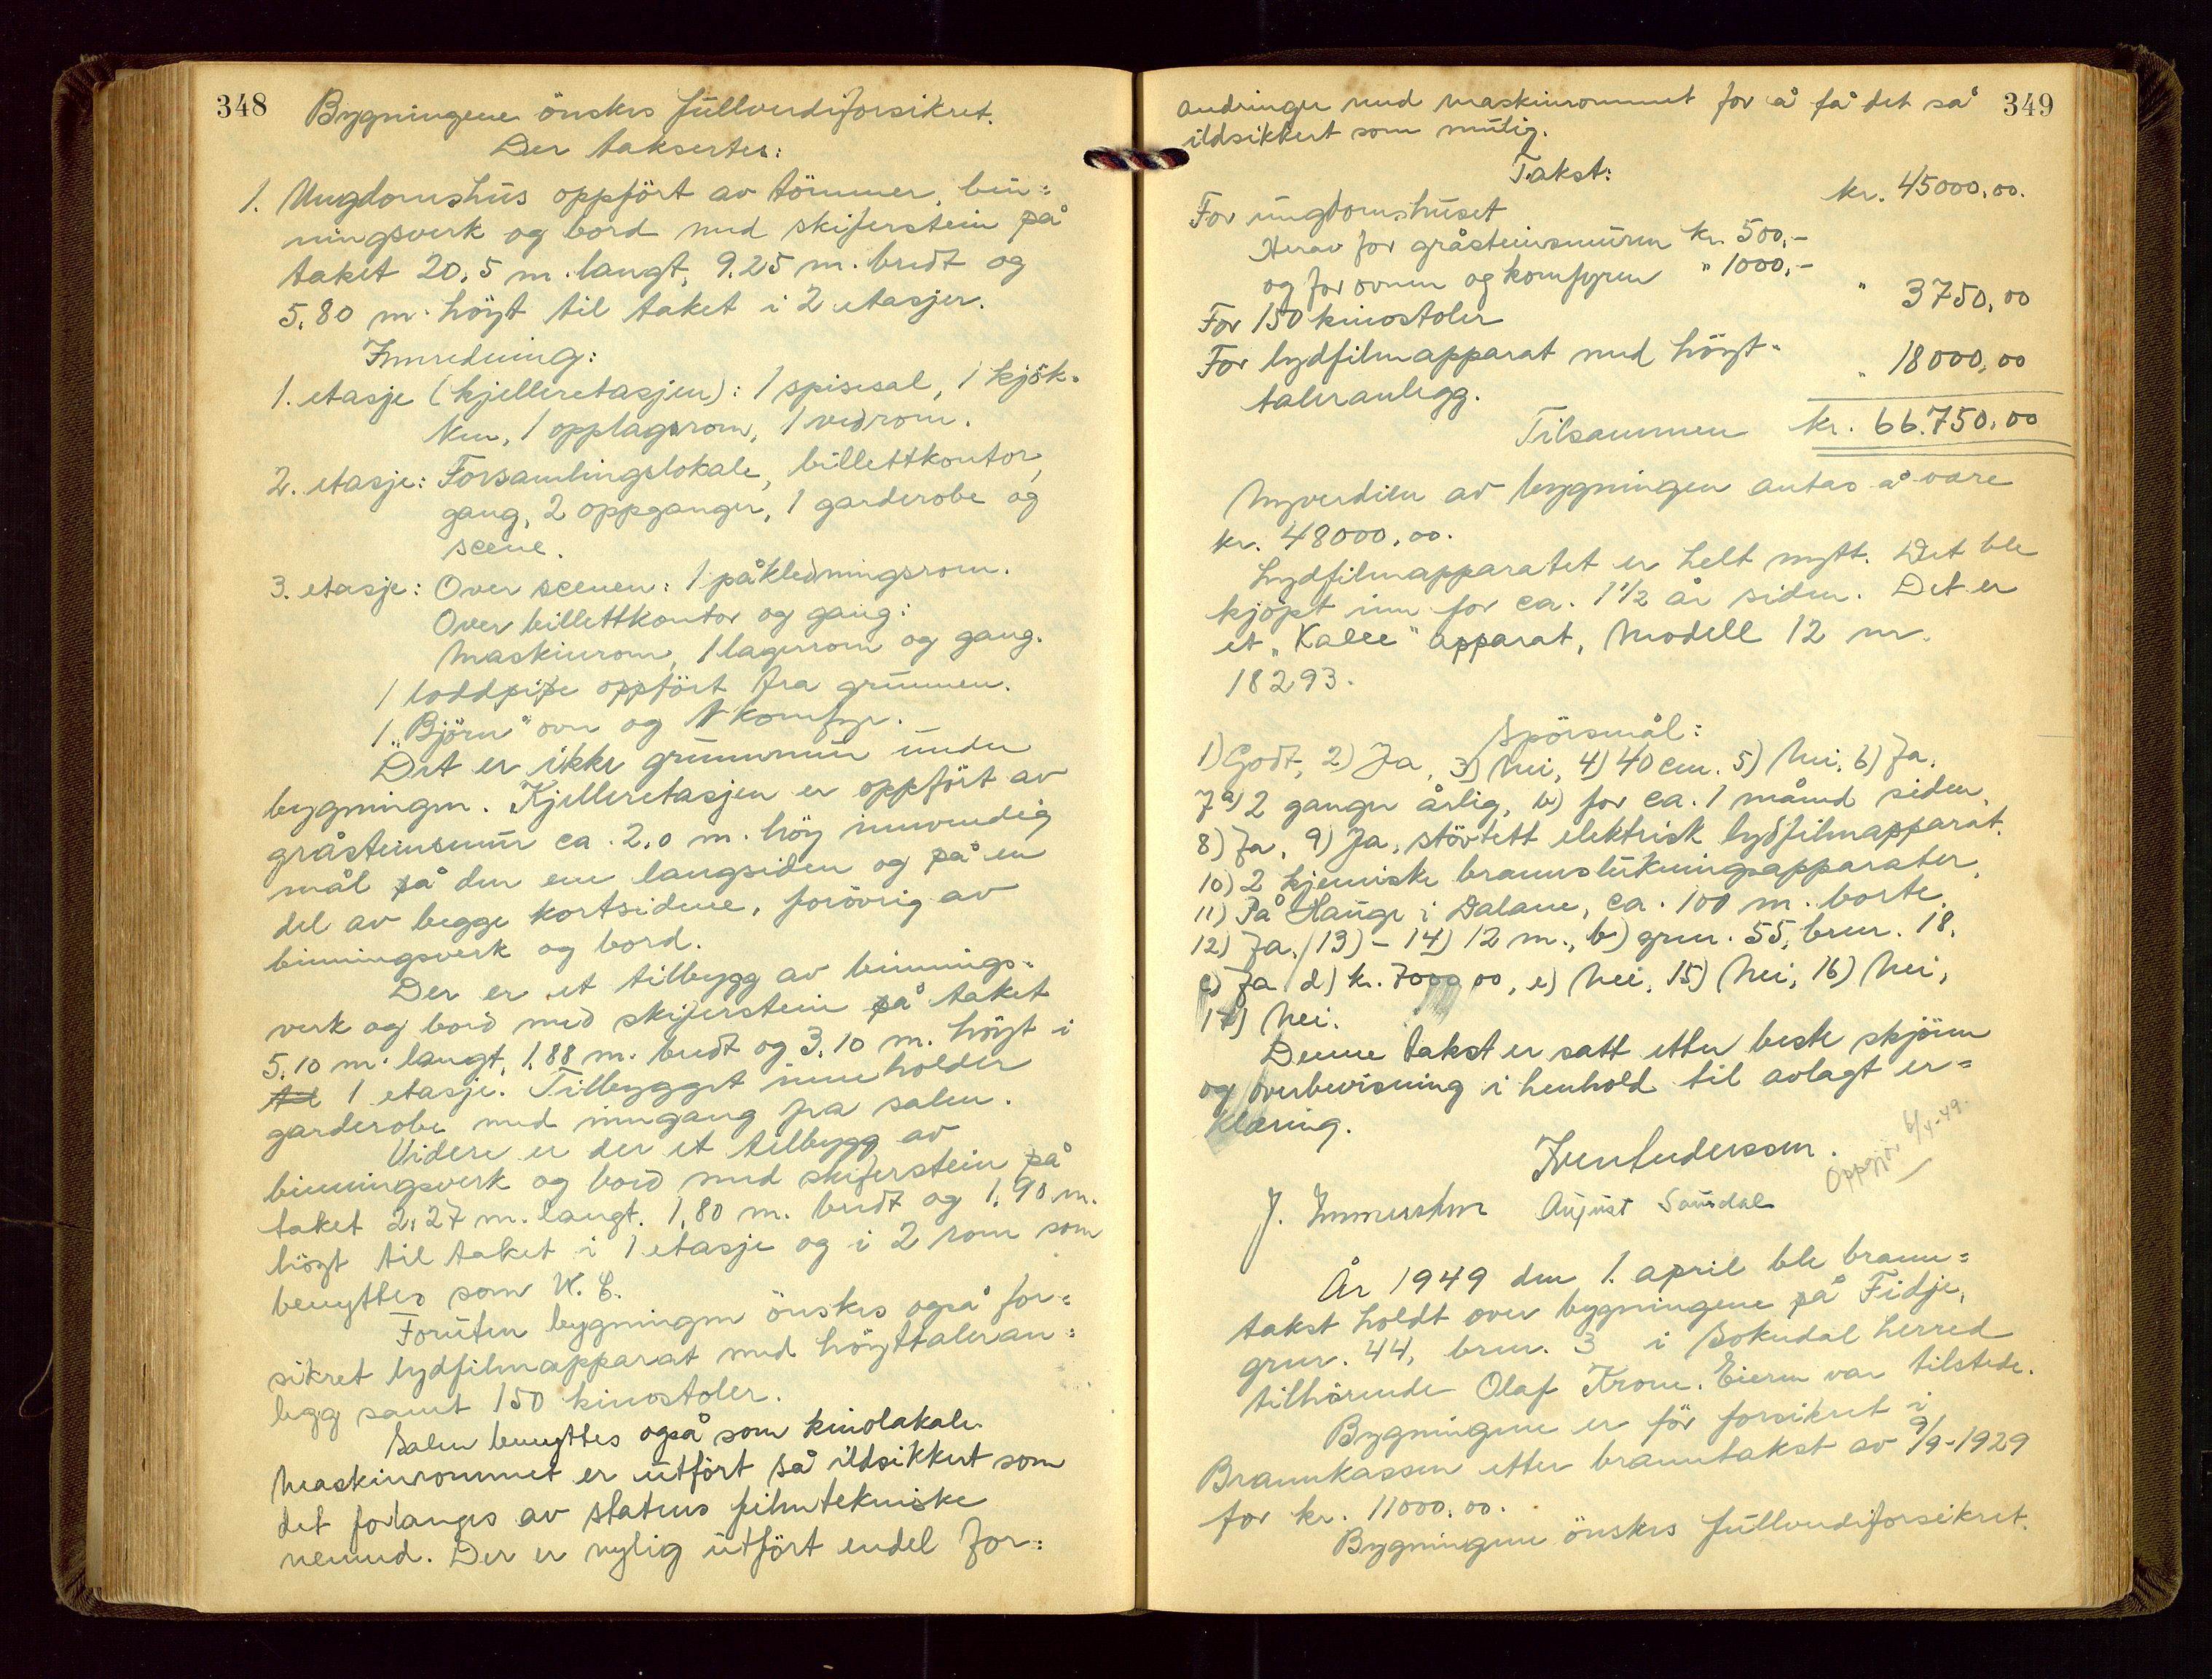 348
Bygningene önskes fullverdiforsikret.
Der takseres:
1. Ungdomshus oppfört av tömmer, bin=
ningsverk og bord med skiferstein på
taket 20,5 m. langt, 9.25 m. bredt og
5,80 m. höyt til taket i 2 etasjer.
Innredning:
1. etasje (kjelleretasjen): 1 spisesal, 1 kjök=
ken, 1 opplagsrom, 1 vedrom.
2. etasje: Forsamlingslokale, billettkontor,
gang, 2 oppganger, 1 garderobe og
scene.
3. etasje: Over scenen: 1 påkledningsrom.
Over billettkontor og gang:
Maskinrom, 1 lagerrom og gang.
1 loddpipe oppfört fra grunnen.
1 „Björn" ovn og 1 komfyr.
Det er ikke grunnmur under
bygningen. Kjelleretasjen er oppfört av
gråsteinsmur ca. 2,0 m. höy innvendig
mål på den ene langsiden og på en
del av begge kortsidene, forövrig av
binningsverk og bord.
Der er et tilbygg av binnings=
verk og bord med skiferstein på taket
5,10 m. langt, 1,88 m. bredt og 3,10 m. höyt i
1 etasje. Tilbygget inneholder
garderobe med inngang fra salen.
Videre er der et tilbygg av
binningsverk og bord med skiferstein på
taket 2,27 m. langt. 1,80 m. bredt og 1,90 m.
höyt til taket i 1 etasje og i 2 rom som
benyttes som W. C.
Foruten bygningen önskes også for=
sikret lydfilmapparat med höyttaleran=
legg samt 150 kinostoler.
Salen benyttes også som kinolokale.
Maskinrommet er utfört så ildsikkert som
det forlanges av statens filmtekniske
nemnd. Der er nylig utfört endel for=
349
andringer med maskinrommet for å få det så
ildsikkert som mulig.
Takst:
For ungdomshuset kr. 45000,00.
Herav for gråsteinsmuren kr. 500,-
og for ovnen og komfyren " 1000,-
For 150 kinostoler " 3750,00
For lydfilmapparat med höyt=
taleranlegg. " 18000,00
Tilsammen kr. 66.750,00
Nyverdien av bygningen antas å være
kr. 48000,00.
Lydfilmapparatet er helt nytt. Det ble
kjöpt inn for ca. 1 1/2 år siden. Det er
et „Kalee" apparat, Modell 12 nr.
18293.
Spörsmål:
1) Godt, 2) Ja, 3) Nei, 4) 40 cm. 5) Nei, 6) Ja,
7 a) 2 ganger årlig, b) for ca. 1 måned siden,
8) Ja, 9) Ja, stövtett elektrisk lydfilmapparat.
10) 2 kjemiske brannslukningsapparater,
11) På Hauge i Dalane, ca. 100 m. borte.
12) Ja, 13) - 14) 12 m., b) gnr. 55, bnr. 18,
c) Ja d) kr. 7000,00, e) Nei, 15) Nei, 16) Nei,
17) Nei.
Denne takst er satt etter beste skjönn
og overbevisning i henhold til avlagt er=
klæring.
Iven Anderssen.
J. Immerstein August Saurdal
Oppgjör 6/4-49.
År 1949 den 1. april ble brann=
takst holdt over bygningene på Fidje,
gnr. 44, bnr. 3 i Sokndal herred
tilhörende Olaf Krone. Eieren var tilstede.
Bygningene er för forsikret i
Brannkassen etter branntakst av 9/9-1929
for kr. 11000,00.
Bygningene önskes fullverdiforsikret.